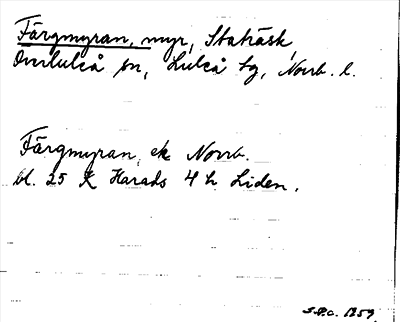 Färgmyran, myr, Staträsk,
Överluleå sn, Luleå tg, Norrb. l.
Färgmyran, ek Norrb.
bl. 25 K Harads 4 h Liden.
S.O.C. 1859